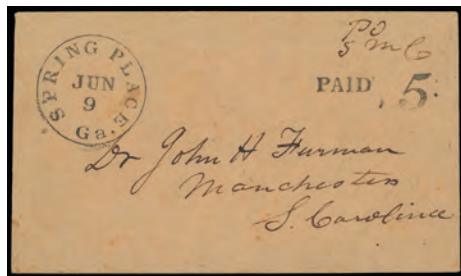 SPRING PLACE
JUN
9
Ga.
PO
5 m C
PAID 5
Dr John H Furman
Manchester
S. Carolina